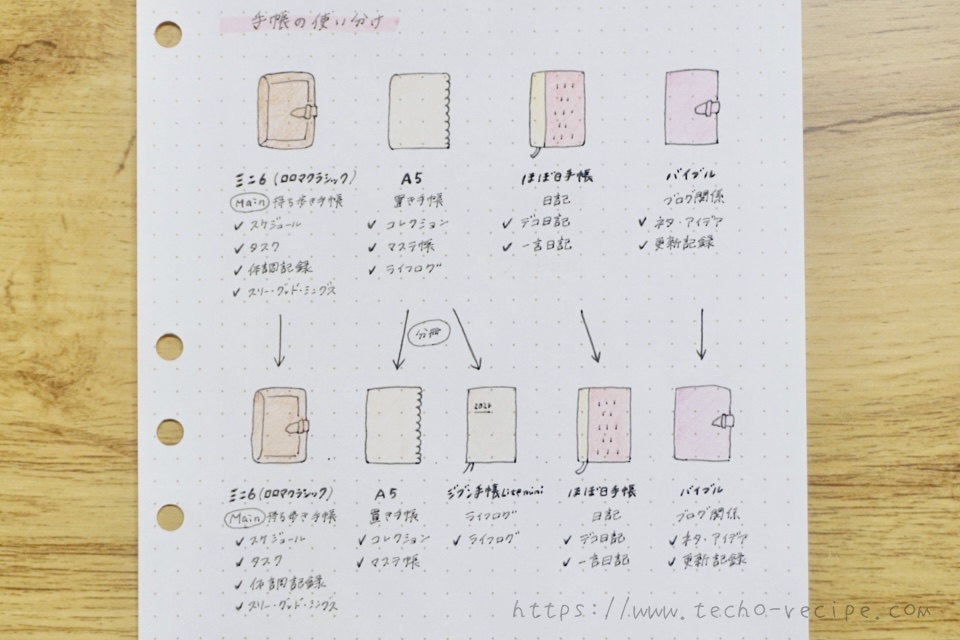 手帳の使い分け
ミニ6(ロロマクラシック)
Main 持ち歩き手帳
✓ スケジュール
✓ タスク
✓ 体調記録
✓ スリー・グッド・シングス
A5
置き手帳
✓ コレクション
✓ マステ帳
✓ ライフログ
ほぼ日手帳
日記
✓ デコ日記
✓ 一言日記
バイブル
ブログ関係
✓ ネタ・アイデア
✓ 更新記録
分冊
ミニ6(ロロマクラシック)
Main 持ち歩き手帳
✓ スケジュール
✓ タスク
✓ 体調記録
✓ スリー・グッド・シングス
A5
置き手帳
✓ コレクション
✓ マステ帳
2024
ジブン手帳Lite mini
ライフログ
✓ ライフログ
ほぼ日手帳
日記
✓ デコ日記
✓ 一言日記
バイブル
ブログ関係
✓ ネタ・アイデア
✓ 更新記録
https://www.techo-recipe.com